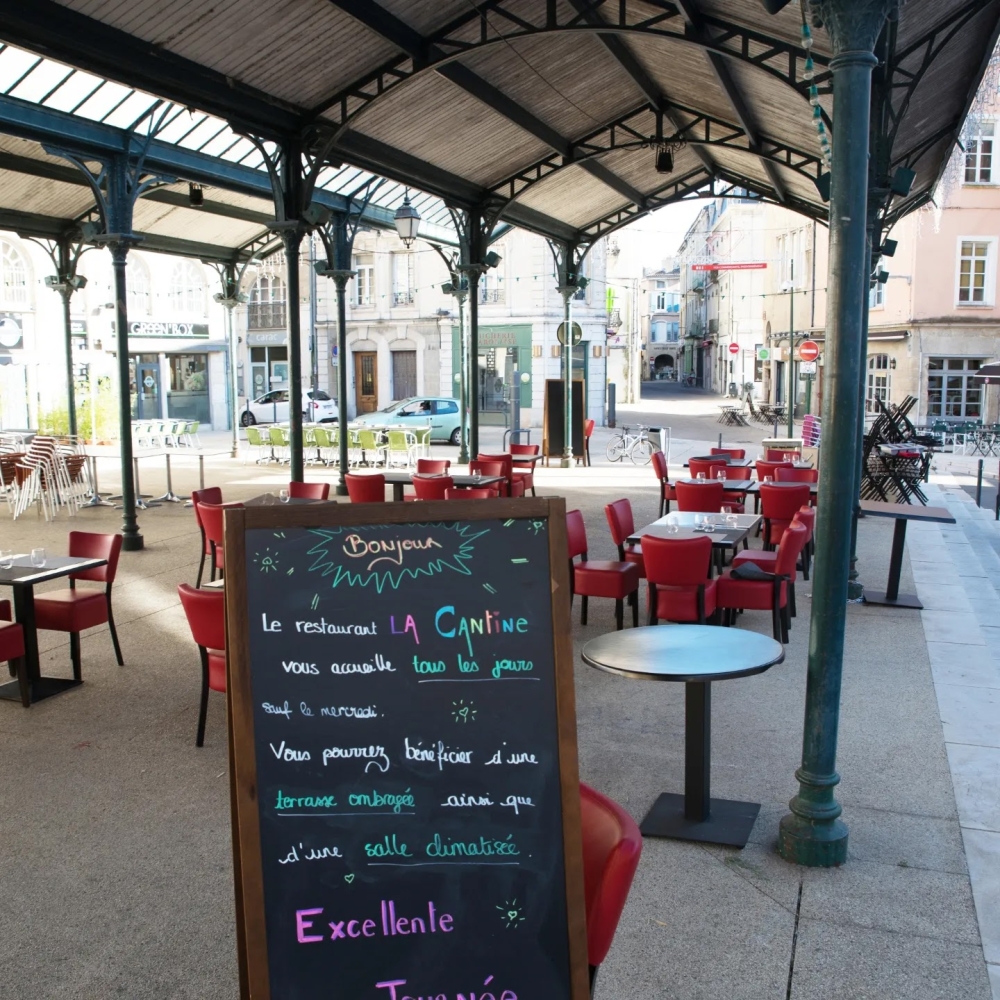 GREEN BOX
Bonjour
Le restaurant LA CANTINE
vous accueille tous les jours
sauf le mercredi.
Vous pourrez bénéficier d'une
terrasse ombragée ainsi que
d'une salle climatisée.
Excellente
Journée